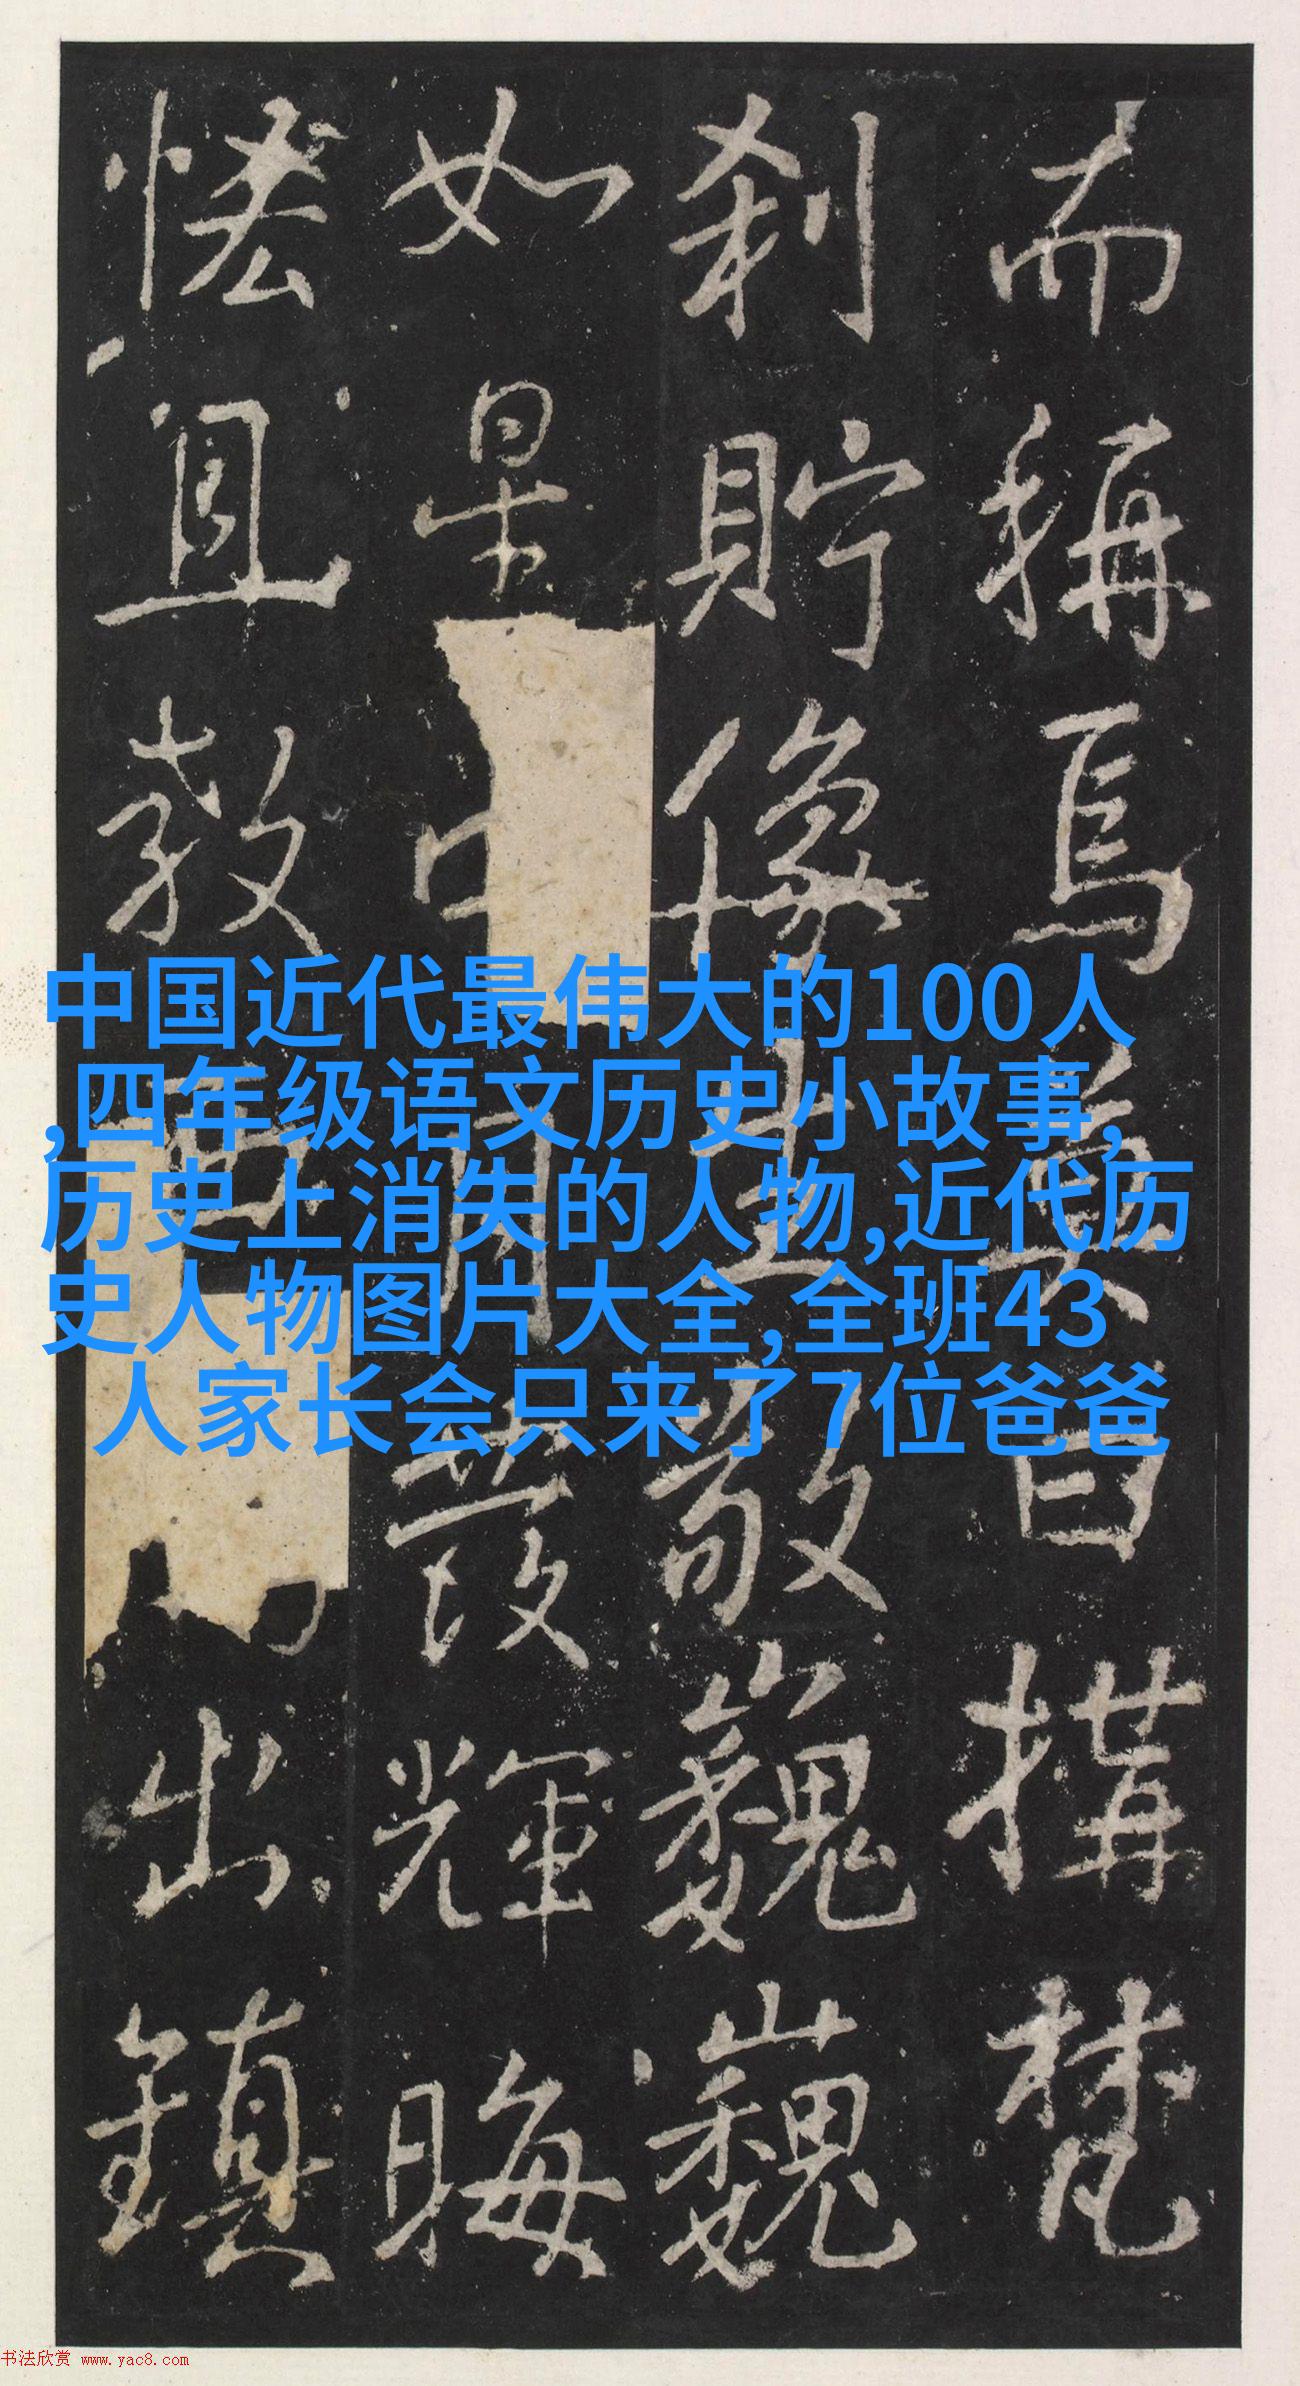 而稱焉
曰搆梵
刹貯像
敬巍巍
如星
發輝晦
宜教
出鎮
中国近代最伟大的100人
,四年级语文历史小故事,
历史上消失的人物,近代历
史人物图片大全,全班43
人家长会只来了7位爸爸
书法欣赏 www.yac8.com